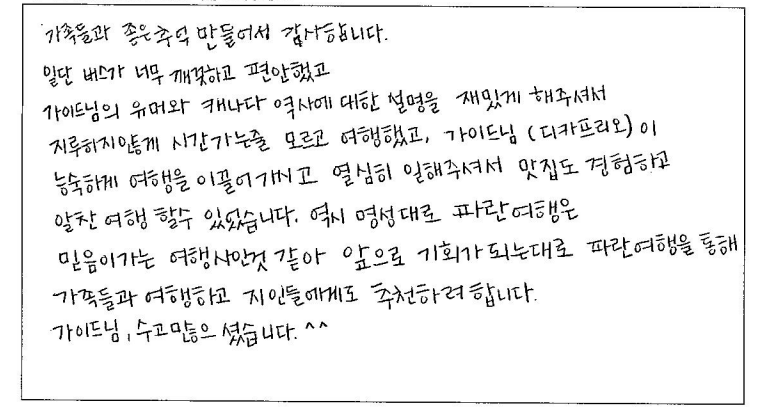 가족들과 좋은추억 만들어서 감사합니다.
일단 버스가 너무 깨끗하고 편안했고
가이드님의 유머와 캐나다 역사에 대한 설명을 재밌게 해주셔서
지루하지않통게 시간가는줄 모르고 여행했고, 가이드님 (디카프리오)이
능숙하게 여행을 이끌어가시고 열심히 일해주셔서 맛집도 경험하고
알찬 여행 할수 있었습니다. 역시 명성대로 파란여행은
믿음이가는 여행사인것 같아 앞으로 기회가 되는대로 파란여행을 통해
가족들과 여행하고 지인들에게도 추천하려 합니다.
가이드님, 수고많으셨습니다. ^^